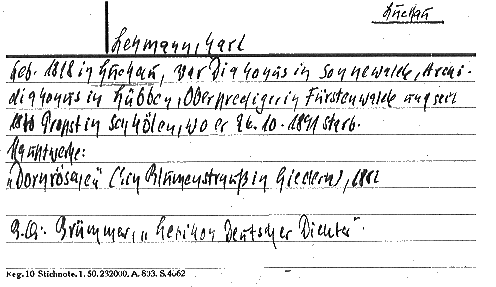 Luckau
Lehmann, Karl
Geb. 1818 in Luckau, war Diakonus in Sonnewalde, Archi-
diakonus in Lübben, Oberprediger in Fürstenwalde und seit
Propst in Seyda, wo er 26.10.1891 starb.
Hauptwerke:
„Dornröschen“ (Ein Blumenstrauß in Liedern),
Brümmer, „Lexikon Deutscher Dichter“
Reg. 10 Stichnote. 1. 50. 232000. A. 803. S. 4662